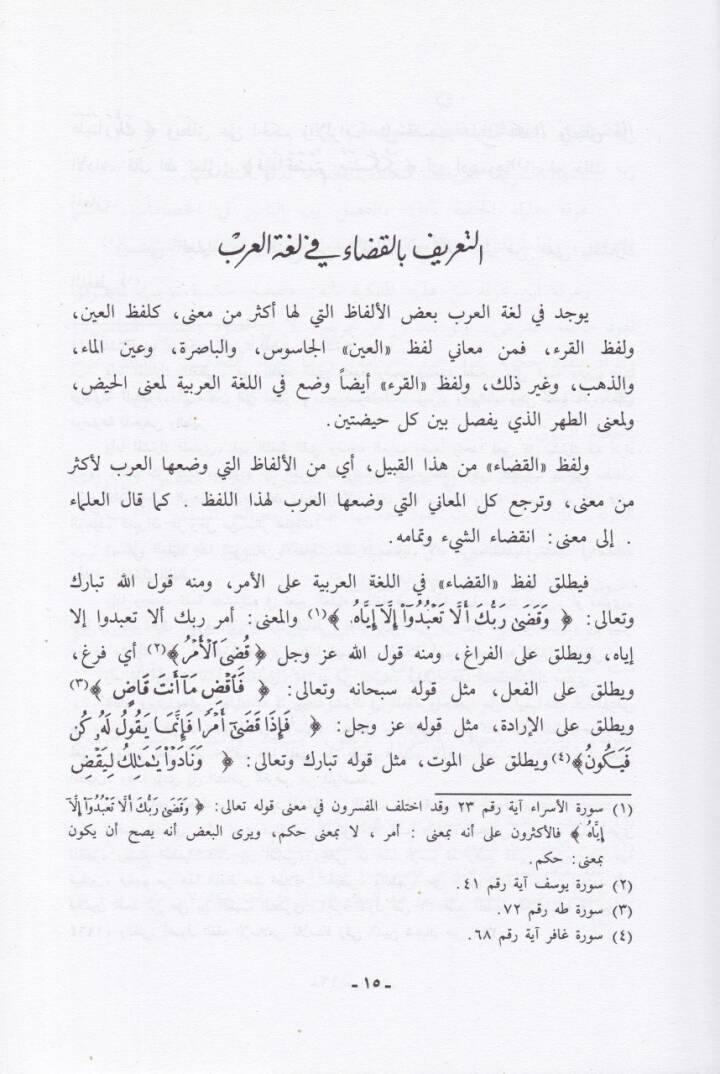 التعريف بالقضاء في لغة العرب
يوجد في لغة العرب بعض الألفاظ التي لها أكثر من معنى، كلفظ العين،
ولفظ القرء، فمن معاني لفظ «العين» الجاسوس، والباصرة، وعين الماء،
والذهب، وغير ذلك، ولفظ «القرء» أيضاً وضع في اللغة العربية لمعنى الحيض،
ولمعنى الطهر الذي يفصل بين كل حيضتين.
ولفظ «القضاء» من هذا القبيل، أي من الألفاظ التي وضعها العرب لأكثر
من معنى، وترجع كل المعاني التي وضعها العرب لهذا اللفظ . كما قال العلماء
. إلى معنى: انقضاء الشيء وتمامه.
فيطلق لفظ «القضاء» في اللغة العربية على الأمر، ومنه قول الله تبارك
وتعالى: ﴿ وَقَضَىٰ رَبُّكَ أَلَّا تَعْبُدُوٓا۟ إِلَّآ إِيَّاهُ ﴾(١) والمعنى: أمر ربك ألا تعبدوا إلا
إياه، ويطلق على الفراغ، ومنه قول الله عز وجل ﴿ قُضِىَ ٱلْأَمْرُ ﴾(٢) أي فرغ،
ويطلق على الفعل، مثل قوله سبحانه وتعالى: ﴿ فَٱقْضِ مَآ أَنتَ قَاضٍ ﴾(٣)
ويطلق على الإرادة، مثل قوله عز وجل: ﴿ فَإِذَا قَضَىٰٓ أَمْرًا فَإِنَّمَا يَقُولُ لَهُۥ كُن
فَيَكُونُ ﴾(٤) ويطلق على الموت، مثل قوله تبارك وتعالى: ﴿ وَنَادَوْا۟ يَٰمَٰلِكُ لِيَقْضِ
(١) سورة الأسراء آية رقم ٢٣ وقد اختلف المفسرون في معنى قوله تعالى: ﴿ وَقَضَىٰ رَبُّكَ أَلَّا تَعْبُدُوٓا۟ إِلَّآ
إِيَّاهُ ﴾ فالأكثرون على أنه بمعنى : أمر ، لا بمعنى حكم، ويرى البعض أنه يصح أن يكون
بمعنى: حكم.
(٢) سورة يوسف آية رقم ٤١.
(٣) سورة طه رقم ٧٢.
(٤) سورة غافر آية رقم ٦٨.
- ١٥ -